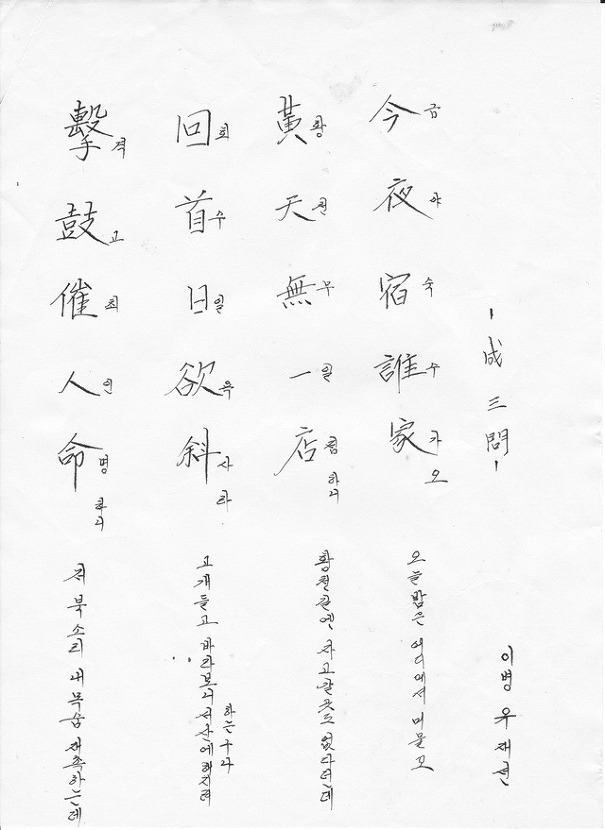 擊鼓催人命
격고최인명하니
저 북소리 내 목숨 재촉하는데
回首日欲斜
회수일욕사라
고개들고 바라보니 서산에 해지려
하는구나
黃天無一店
황천무일점하니
황천길엔 자고갈 곳도 없다던데
今夜宿誰家
금야숙수가오
오늘밤은 어디에서 머물꼬
- 成三問 -
이병 우재현